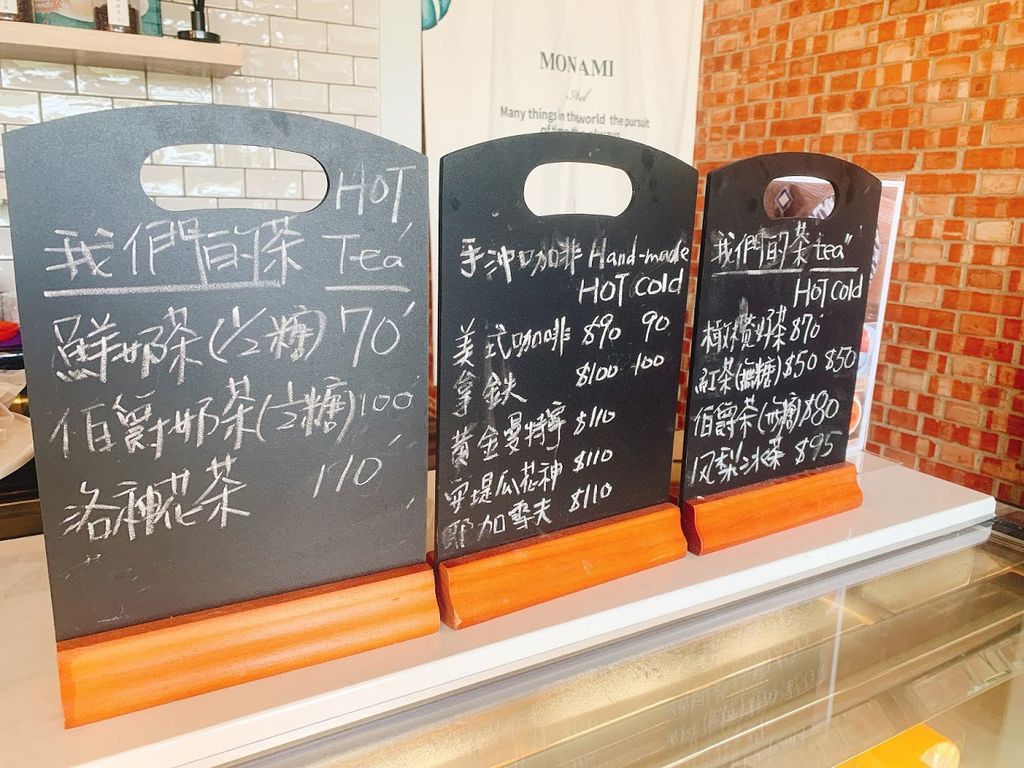 MONAMI
Many things in the world the pursuit
HOT
我們的茶 Tea
鮮奶茶(1/2糖) 70
伯爵奶茶(1/2糖) 100
洛神花茶 110
手沖咖啡 Hand-made
HOT Cold
美式咖啡 $90 90
拿鉄 $100 100
黃金曼特寧 $110
安堤瓜花神 $110
耶加雪夫 $110
我們的茶 tea"
HOT Cold
橄欖奶茶 $70
紅茶(無糖) $50 $50
伯爵茶 $80
凤梨冰茶 $95